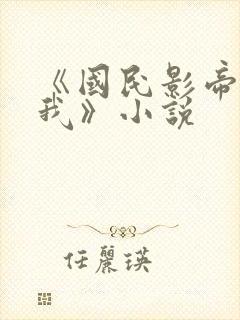 《國民影帝
我》小說
任麗瑛